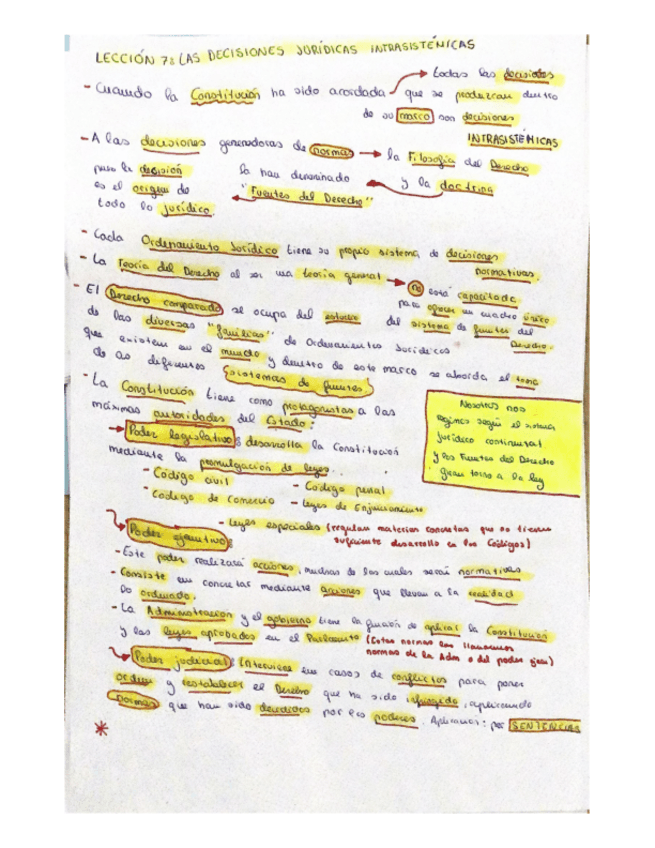 LECCIÓN 7: LAS DECISIONES JURÍDICAS INTRASISTÉMICAS
- Cuando la Constitución ha sido acordada → todas las decisiones
que se produzcan dentro
de su marco son decisiones
INTRASISTÉMICAS
- A las decisiones generadoras de normas → la Filosofía del Derecho
y la doctrina
la han denominado
"Fuentes del Derecho"
pues la decisión
es el origen de
todo lo jurídico.
- Cada Ordenamiento Jurídico tiene su propio sistema de decisiones
normativas.
- La Teoría del Derecho al ser una teoría general → no está capacitada
para ofrecer un cuadro único
del sistema de fuentes del
Derecho.
- El Derecho comparado se ocupa del estudio
de las diversas "familias" de Ordenamientos Jurídicos
que existen en el mundo y dentro de este marco se aborda el tema
de los diferentes sistemas de fuentes
- La Constitución tiene como protagonistas a las
máximas autoridades del Estado:
→ Poder legislativo: desarrolla la Constitución
mediante la promulgación de leyes.
- Código civil
- Código penal
- Código de comercio
- Leyes de Enjuiciamiento
- Leyes especiales (regulan materias concretas que no tienen
suficiente desarrollo en los Códigos)
Nosotros nos
regimos según el sistema
jurídico continental
y las Fuentes del Derecho
giran torno a la ley
→ Poder ejecutivo:
- Este poder realizará acciones, muchas de las cuales serán normativas
- Consiste en concretar mediante acciones que llevan a la realidad
lo ordenado.
- La Administración y el gobierno tiene la función de aplicar la Constitución
y las leyes aprobadas en el Parlamento (Estas normas las llamamos
normas de la Adm o del poder ejec)
→ Poder judicial: Interviene en casos de conflictos para poner
orden y restablecer el Derecho que ha sido infringido, aplicando
normas que han sido decididas por los poderes. Aplicación: por SENTENCIAS
*